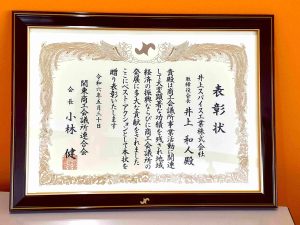 表彰状
井上スパイス工業株式会社
取締役会長 井上 和人 殿
貴殿は商工会議所事業活動に関連
して大変顕著な功績を残され地域
経済の振興ならびに商工会議所の
発展に多大な貢献をされました
ここにベストアクションとして本状を
贈り表彰いたします
令和六年五月三十日
関東商工会議所連合会
会長 小林 健